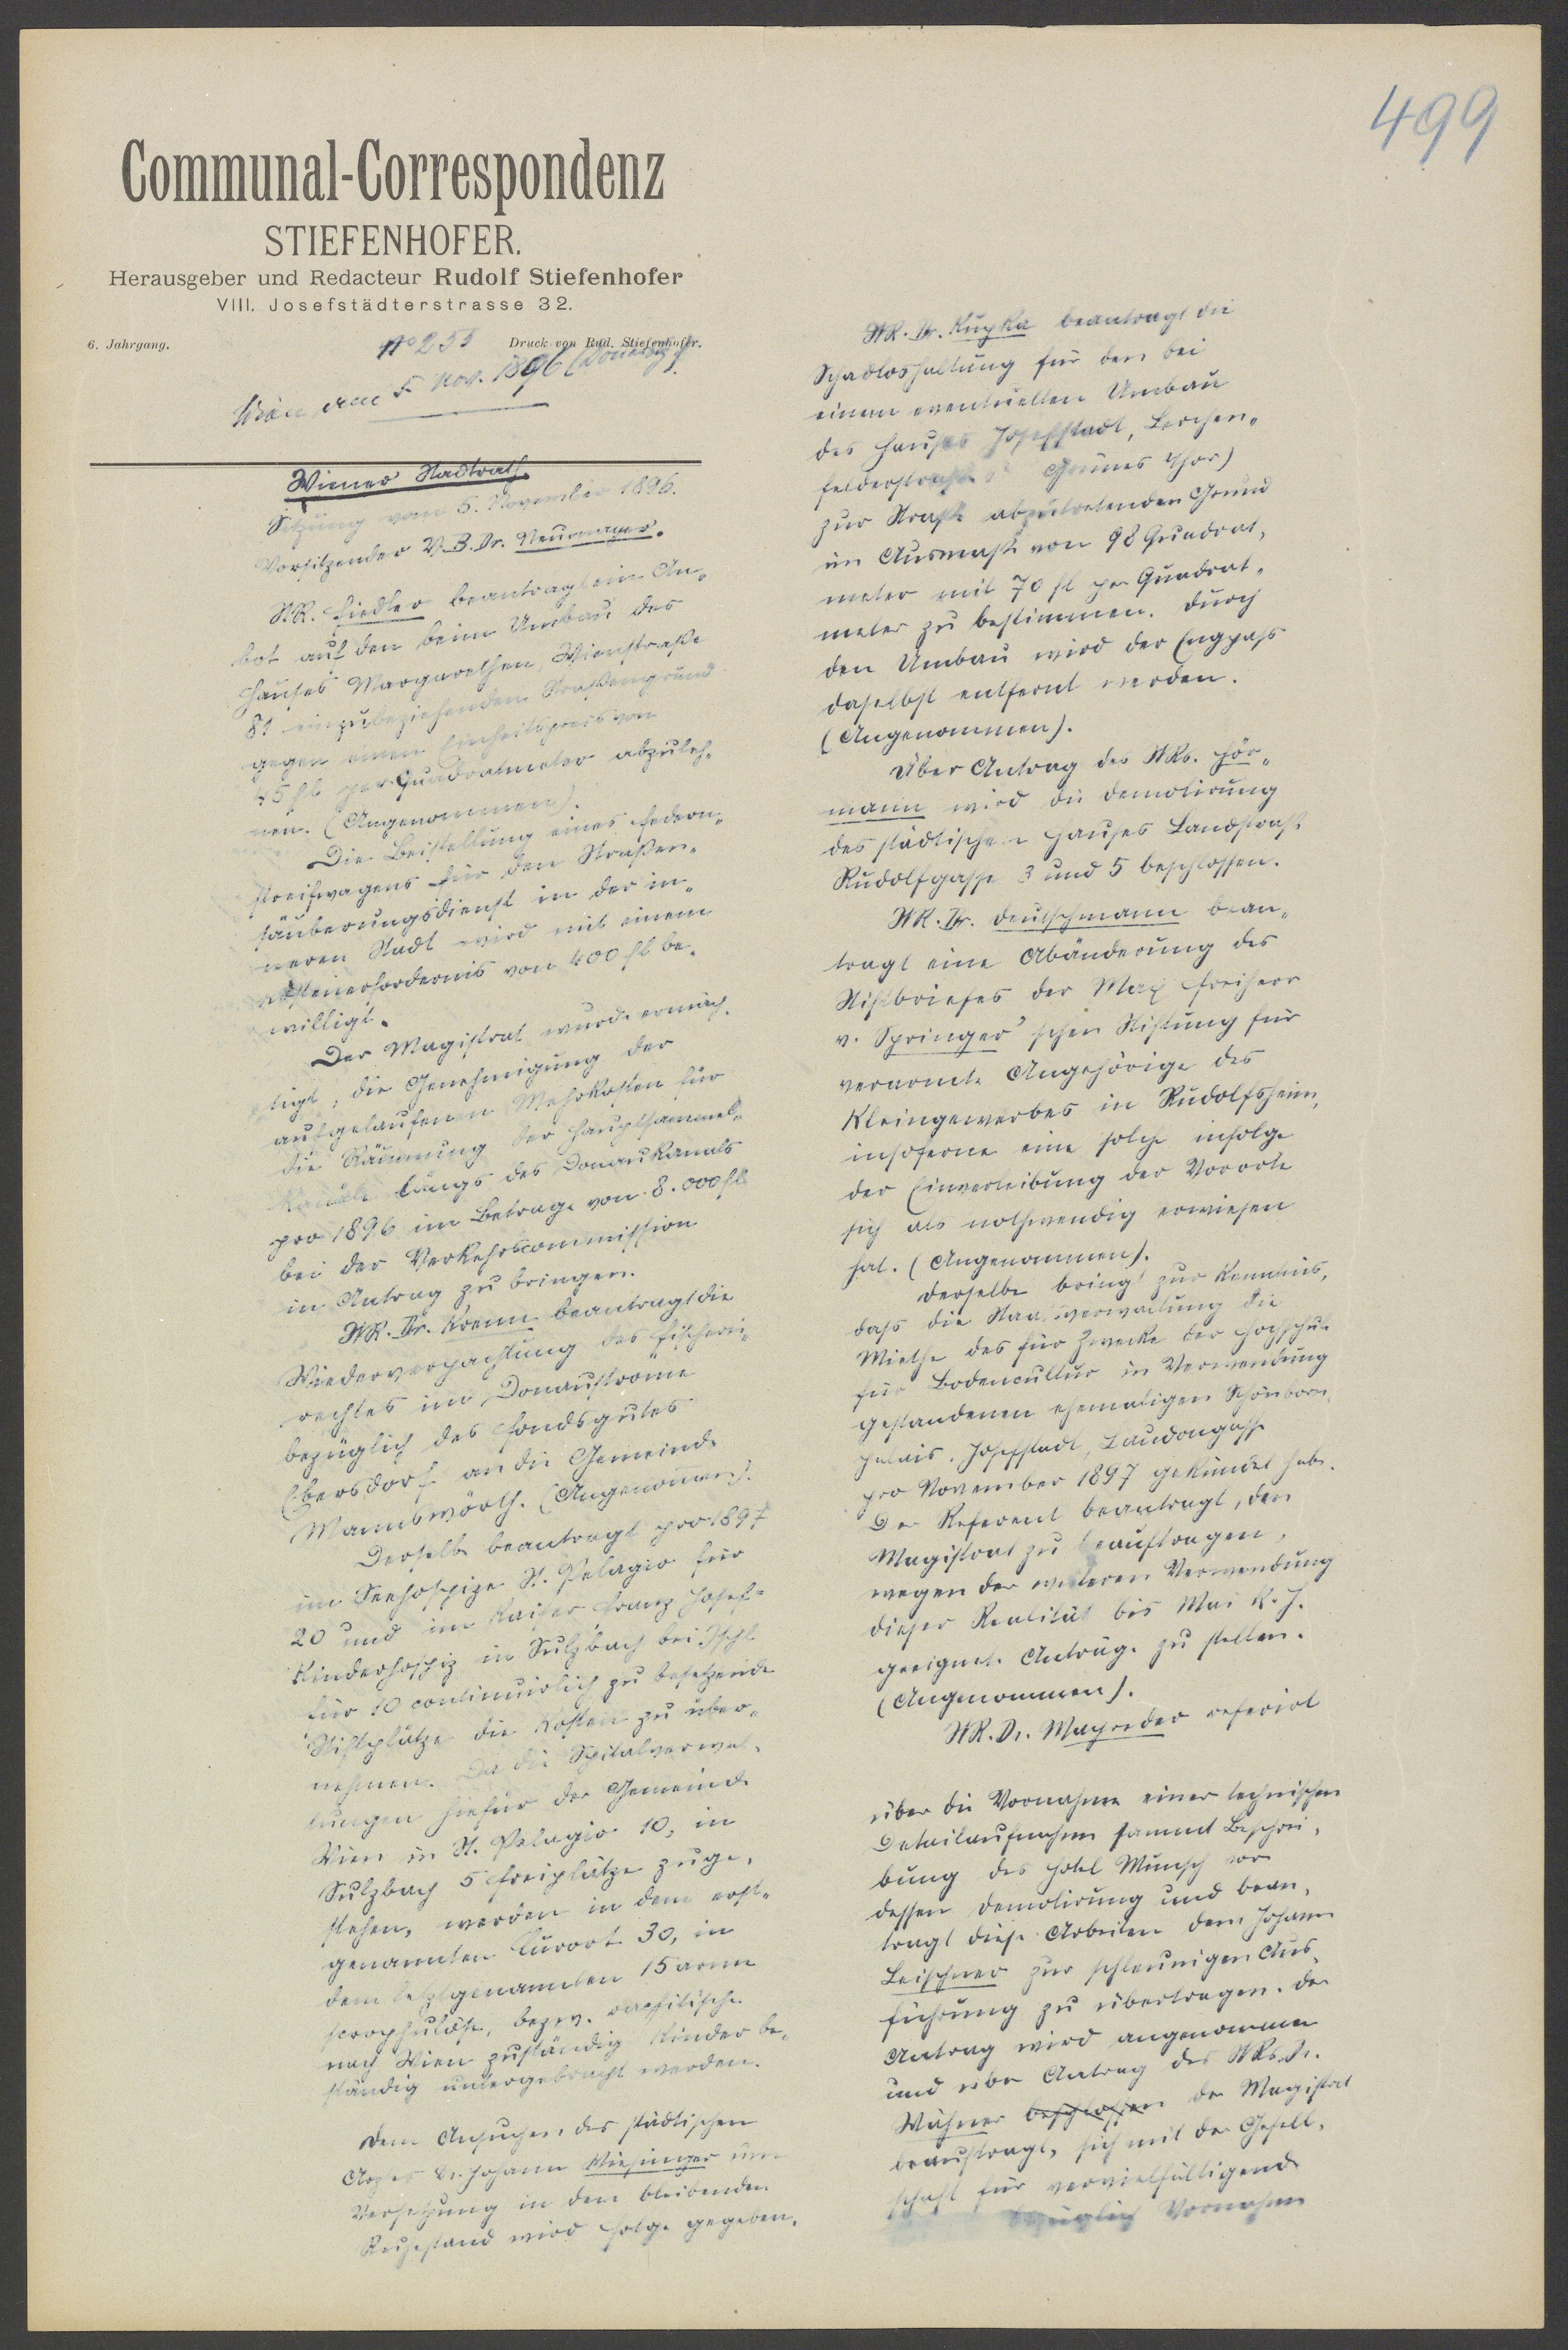 499
Communal-Correspondenz
STIEFENHOFER.
Herausgeber und Redacteur Rudolf Stiefenhofer
VIII. Josefstädterstrasse 32.
6. Jahrgang.
No 255
Druck von Rud. Stiefenhofer.
Wien am 5. Nov. 1896
Wiener Stadtrath.
Sitzung vom 5. November 1896.
Vorsitzender V.B. Dr. Neumayer.
StR. Fiedler beantragt ein An-
bot auf den beim Umbau des
Hauses Margarethen, Wienstraße
81 einzubeziehenden Straßengrund
gegen einen Einheitspreis von
45 fl per Quadratmeter abzuleh-
nen. (Angenommen).
Die Beistellung eines Federn-
streifwagens für den Straßen-
säuberungsdienst in der in-
neren Stadt wird mit einem
Kostenerfordernis von 400 fl be-
willigt.
Der Magistrat wurde ermäch-
tigt, die Genehmigung der
aufgelaufenen Mehrkosten für
die Räumung der Hauptsammel-
kanäle längs des Donaukanals
pro 1896 im Betrage von 8.000 fl
bei der Verkehrscommission
in Antrag zu bringen.
StR. Dr. Krenn beantragt die
Wiederverpachtung des Fischerei-
rechtes im Donaustrome
bezüglich des Fondsgutes
Ebersdorf an die Gemeinde
Mannswörth. (Angenommen).
Derselbe beantragt pro 1897
im Seehospize St. Pelagio für
20 und im Kaiser Franz Josef-
Kinderhospiz in Sulzbach bei Ischl
für 10 continuirlich zu besetzende
Stiftplätze die Kosten zu über-
nehmen. Da die Spitalverwal-
tungen hiefür der Gemeinde
Wien in St. Pelagio 10, in
Sulzbach 5 Freiplätze zuge-
stehen, werden in dem erst-
genannten Curort 30, in
dem letztgenannten 15 arme
scrophulöse, bezw. rachitische
nach Wien zuständig Kinder be-
ständig untergebracht werden.
Dem Ansuchen des städtischen
Arztes Dr. Johann Wiesinger um
Versetzung in den bleibenden
Ruhestand wird Folge gegeben.
StR. Dr. Kupka beantragt die
Schadloshaltung für den bei
einem eventuellen Umbau
des Hauses Josefstadt, Lerchen-
felderstraße Grünes Thor)
zur Straße abzutretenden Grund
im Ausmaße von 98 Quadrat-
meter mit 70 fl per Quadrat-
meter zu bestimmen. Durch
den Umbau wird der Engpass
daselbst entfernt werden.
(Angenommen).
Über Antrag des StRs. Hör-
mann wird die Demolirung
des städtischen Hauses Landstraße
Rudolfgasse 3 und 5 beschlossen.
StR. Dr. Deutschmann bean-
tragt eine Abänderung des
Stiftbriefes der Max Freiherr
v. Springer'schen Stiftung für
verarmte Angehörige des
Kleingewerbes in Rudolfsheim,
insoferne eine solche infolge
der Einverleibung der Vororte
sich als nothwendig erwiesen
hat. (Angenommen).
Derselbe bringt zur Kenntnis,
dass die Staatsverwaltung die
Miethe des für Zwecke der Hochschule
für Bodencultur in Verwendung
gestandenen ehemaligen Schönborn-
palais, Josefstadt, Laudongasse
pro November 1897 gekündet habe.
Der Referent beantragt, den
Magistrat zu beauftragen,
wegen der weiteren Verwendung
dieser Realität bis Mai k. J.
geeignete Anträge zu stellen.
(Angenommen).
StR. Dr. Mayreder referirt
über die Vornahme einer technischen
Detailaufnahme sammt Beschrei-
bung des Hotel Munsch vor
dessen Demolirung und bean-
tragt diese Arbeiten dem Johann
Leischner zur schleunigen Aus-
führung zu übertragen. Der
Antrag wird angenommen
und über Antrag des StRs. Dr.
Wähner beschlossen der Magistrat
beauftragt, sich mit der Gesell-
schaft für vervielfältigende
bezüglich Vornahme